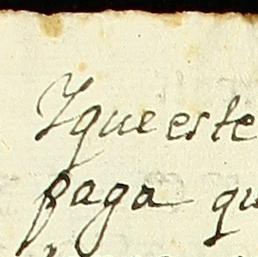 Y que este
paga qu